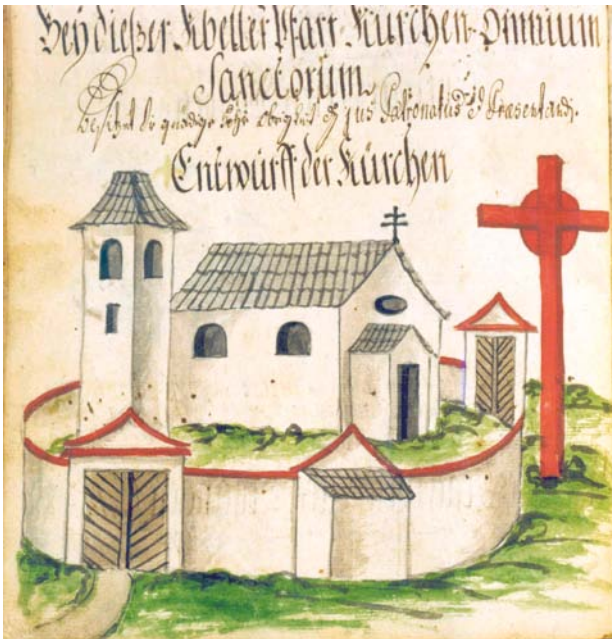 Bey dießer Kbeller Pfarr-Kürchen-Omnium
Sanctorum
besitzet die gnädige Obrigkeit das jus Patronatus & Praesentandi.
Entwurff der Kürchen